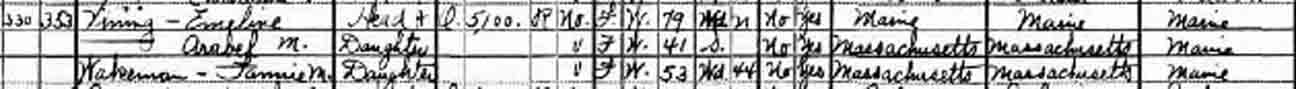 330 353 Vining - Emeline Head + O. 5,100. R No. F W. 79 Wd n No Yes Maine Maine Maine
Arabel M. Daughter v F W. 41 S. No Yes Massachusetts Massachusetts Maine
Wakeman - Fannie M. Daughter v F W. 53 Wd. 44 No Yes Massachusetts Massachusetts Maine